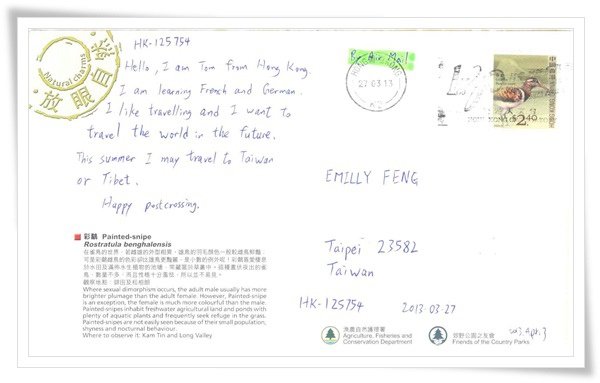 HK-125754
Hello, I am Tom from Hong Kong.
I am learning French and German.
I like travelling and I want to
travel the world in the future.
This summer I may travel to Taiwan
or Tibet.
Happy postcrossing.
放眼自然
Natural charms
By Air Mail
27 03 13
中國香港
HONG KONG
$2.40
EMILLY FENG
Taipei 23582
Taiwan
HK-125754
2013-03-27
彩鷸 Painted-snipe
Rostratula benghalensis
Where sexual dimorphism occurs, the adult male usually has more
brighter plumage than the adult female. However, Painted-snipe
is an exception, the female is much more colourful than the male.
Painted-snipes inhabit freshwater agricultural land and ponds with
plenty of aquatic plants and frequently seek refuge in the grass.
Painted-snipes are not easily seen because of their small population,
shyness and nocturnal behaviour.
Where to observe it: Kam Tin and Long Valley
漁農自然護理署
Agriculture, Fisheries and
Conservation Department
郊野公園之友會
Friends of the Country Parks